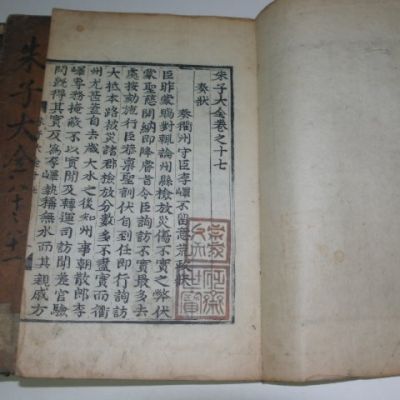 朱子大全卷之十七
奏狀
奏衢州守臣李嶧不留意荒政狀
臣昨蒙賜對輒論州縣檢放災傷不實之弊伏
蒙聖慈開納即降睿旨令臣詢訪不實最多去
處按劾施行臣恭禀聖訓伏自到任即行詢訪
大抵本路被災諸郡檢放分數多不盡實而衢
州尤甚盖自去歲大水之後知州事朝散郎李
嶧專務掩蔽不以實聞及轉運司訪聞差官驗
問旣得其實及爲李嶧執稱無水而其親戚方
朱子大全